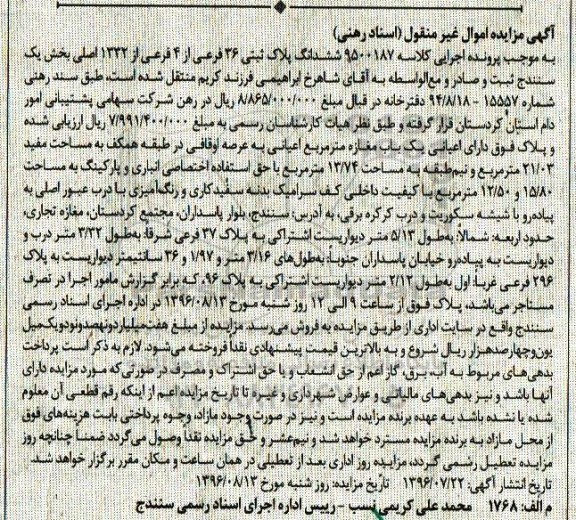 آگهی مزایده اموال غیر منقول (اسناد رهنی)
به موجب پرونده اجرایی کلاسه ۹۵۰۰۱۸۷ ششدانگ پلاک ثبتی ۳۶ فرعی از ۴ فرعی از ۱۳۳۲ اصلی بخش یک
سنندج ثبت و صادر و مع‌الواسطه به آقای شاهرخ ابراهیمی فرزند کریم منتقل شده است، طبق سند رهنی
شماره ۱۵۵۵۷ - ۹۴/۸/۱۸ دفترخانه در قبال مبلغ ۸/۸۶۵/۰۰۰/۰۰۰ ریال در رهن شرکت سهامی پشتیبانی امور
دام استان کردستان قرار گرفته و طبق نظر هیات کارشناسان رسمی به مبلغ ۷/۹۹۱/۴۰۰/۰۰۰ ریال ارزیابی شده
و پلاک فوق دارای اعیانی یک باب مغازه مترمربع اعیانی به عرصه اوقافی در طبقه همکف به مساحت مفید
۲۱/۰۳ مترمربع و نیم‌طبقه به مساحت ۱۳/۷۴ مترمربع با حق استفاده اختصاصی انباری و پارکینگ به مساحت
۱۵/۸۰ و ۱۲/۵۰ مترمربع با کیفیت داخلی کف سرامیک بدنه سفیدکاری و رنگ‌آمیزی با درب عبور اصلی به
پیاده‌رو با شیشه سکوریت و درب کرکره برقی، به آدرس: سنندج، بلوار پاسداران، مجتمع کردستان، مغازه تجاری،
حدود اربعه: شمالاً: به‌طول ۵/۱۳ متر دیواریست اشتراکی به پلاک ۳۷ فرعی شرقاً: به‌طول ۳/۳۲ متر درب و
دیواریست به پیاده‌رو خیابان پاسداران جنوباً: به‌طول‌های ۳/۱۶ متر و ۱/۹۷ و ۳۶ سانتیمتر دیواریست به پلاک
۲۹۶ فرعی غرباً: اول به‌طول ۲/۱۲ متر دیواریست اشتراکی به پلاک ۹۶، که برابر گزارش مامور اجرا در تصرف
مستاجر می‌باشد، پلاک فوق از ساعت ۹ الی ۱۲ روز شنبه مورخ ۱۳۹۶/۰۸/۱۳ در اداره اجرای اسناد رسمی
سنندج واقع در سایت اداری از طریق مزایده به فروش می‌رسد. مزایده از مبلغ هفت‌میلیاردونهصدونودویک‌میل
یون‌وچهارصدهزار ریال شروع و به بالاترین قیمت پیشنهادی نقداً فروخته می‌شود. لازم به ذکر است پرداخت
بدهی‌های مربوط به آب، برق، گاز اعم از حق انشعاب و یا حق اشتراک و مصرف در صورتی که مورد مزایده دارای
آنها باشد و نیز بدهی‌های مالیاتی و عوارض شهرداری و غیره تا تاریخ مزایده اعم از اینکه رقم قطعی آن معلوم
شده یا نشده باشد به عهده برنده مزایده است و نیز در صورت وجود مازاد، وجوه پرداختی بابت هزینه‌های فوق
از محل مازاد به برنده مزایده مسترد خواهد شد و نیم‌عشر و حق مزایده نقداً وصول می‌گردد ضمناً چنانچه روز
مزایده تعطیل رسمی گردد، مزایده روز اداری بعد از تعطیلی در همان ساعت و مکان مقرر برگزار خواهد شد.
تاریخ انتشار آگهی: ۱۳۹۶/۰۷/۲۲ تاریخ مزایده: روز شنبه مورخ ۱۳۹۶/۰۸/۱۳
م الف: ۱۷۶۸ محمد علی کریمی نسب - رییس اداره اجرای اسناد رسمی سنندج